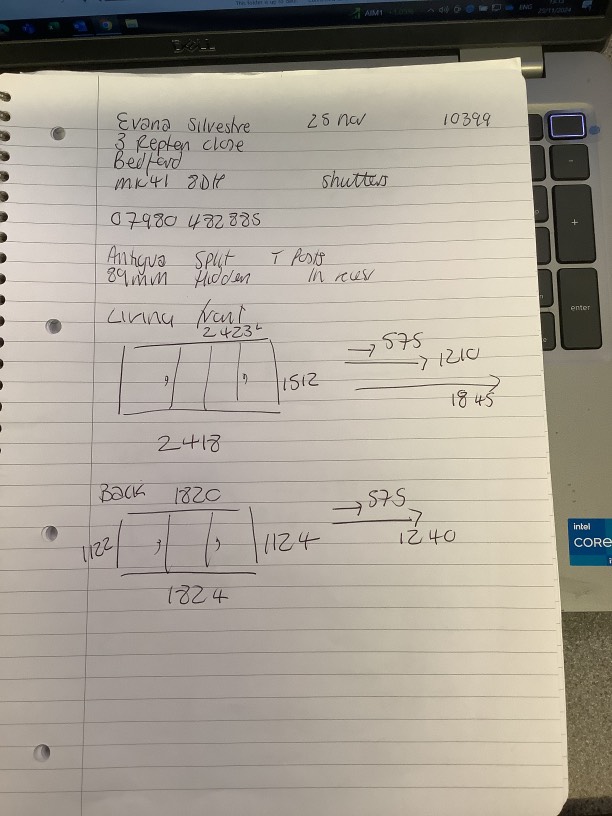 DELL
Evana Silvestre 28 nov 10399
3 Repten close
Bedford
MK41 8DH shutters
07980 482885
Antigua Split T Posts
89mm Hidden In reces
Living front
2423
1512
575
1210
1845
2418
Back 1820
1122
1124
575
1240
1824
enter
intel
CORE
AIM1
ENG